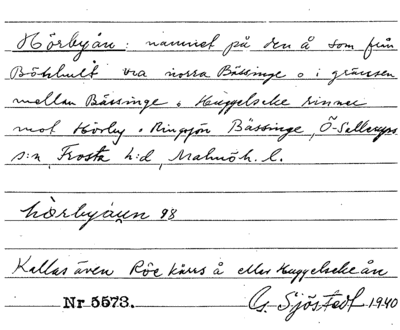 Hörbyån: namnet på den å som från
Bökhult via norra Bässinge o i gränsen
mellan Bässinge o Huggelseke rinner
mot Hörby o Ringsjön Bässinge, Ö-Sallerups
s:n, Frosta h:d, Malmöh. l.
hörbyåen 98
Kallas även Röekärrs å eller Huggelsekeån
Nr 5573. G. Sjöstedt 1940